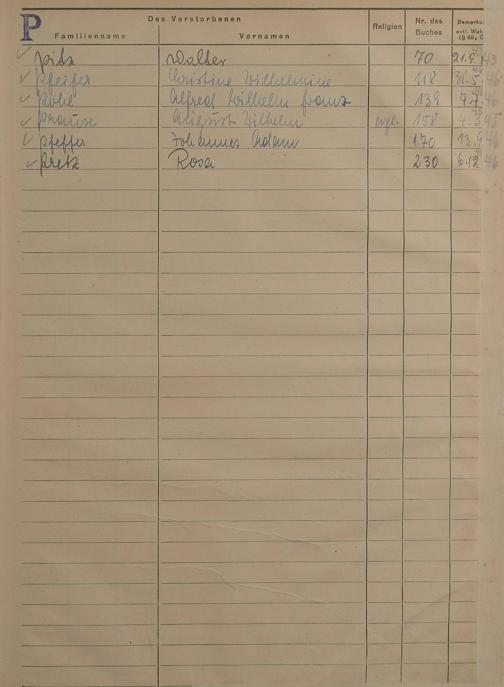 P
Des Verstorbenen
Familienname Vornamen Religion Nr. des Buches
Pitz Walter 70 21.9.43
Pfeifer Christine Wilhelmine 118 31.5.46
Pohl Alfred Wilhelm Franz 139 7.7.46
August Wilhelm evgl. 158 4.3.45
Pfeffer Johannes Adam 170 13.9.46
Pretz Rosa 230 6.12.46